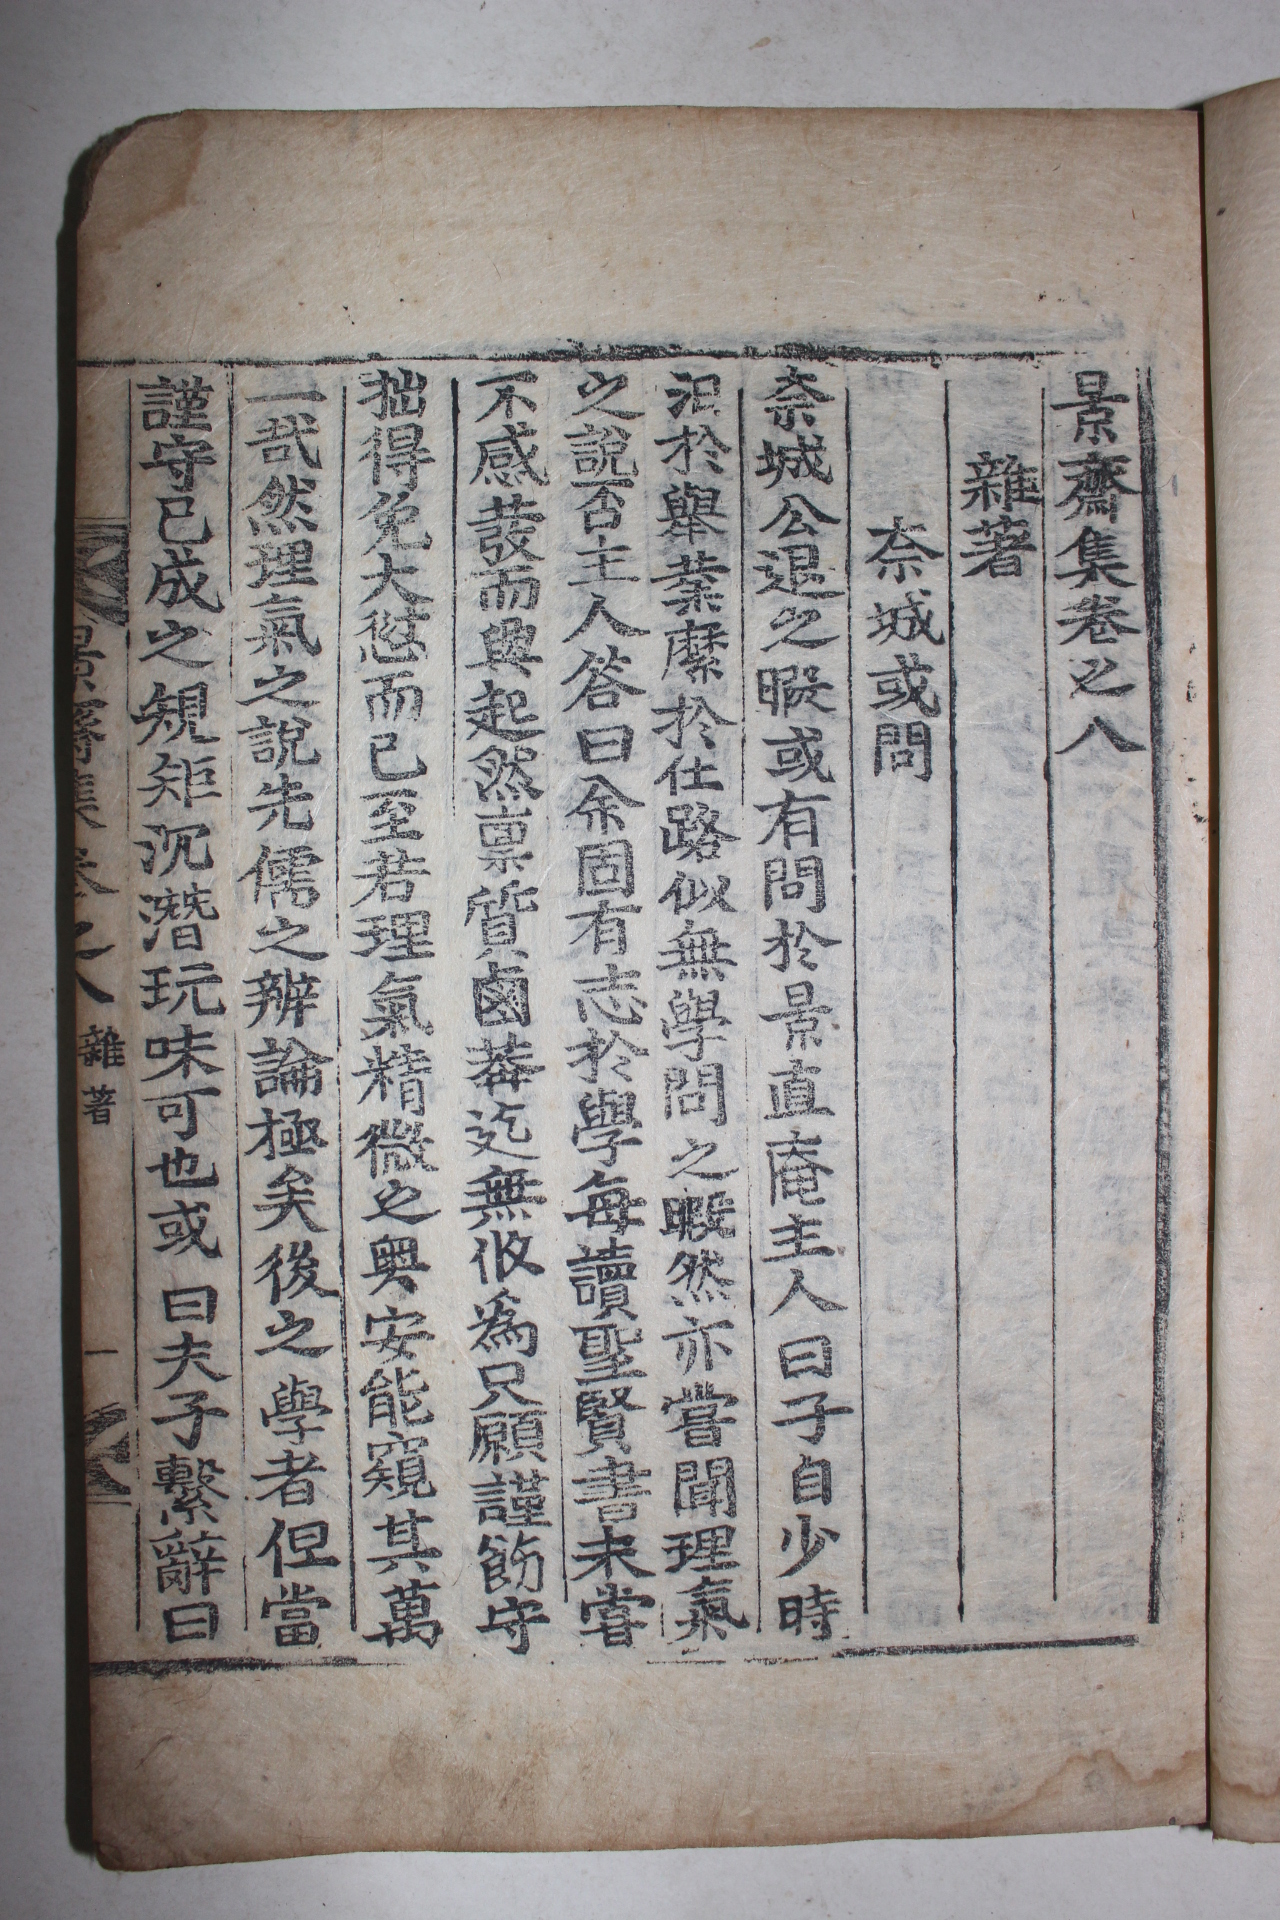 景齋集卷之八
雜著
奈城或問
奈城公退之暇或有問於景直庵主人曰子自少時
汨於舉業縻於仕路似無學問之暇然亦嘗聞理氣
之說否主人答曰余固有志於學每讀聖賢書未嘗
不感發而興起然禀質鹵莽迄無攸為只願謹飭守
拙得免大愆而已至若理氣精微之奧安能窺其萬
一哉然理氣之說先儒之辨論極矣後之學者但當
謹守已成之規矩沉潛玩味可也或曰夫子繫辭曰
景齋集卷之八 雜著 一